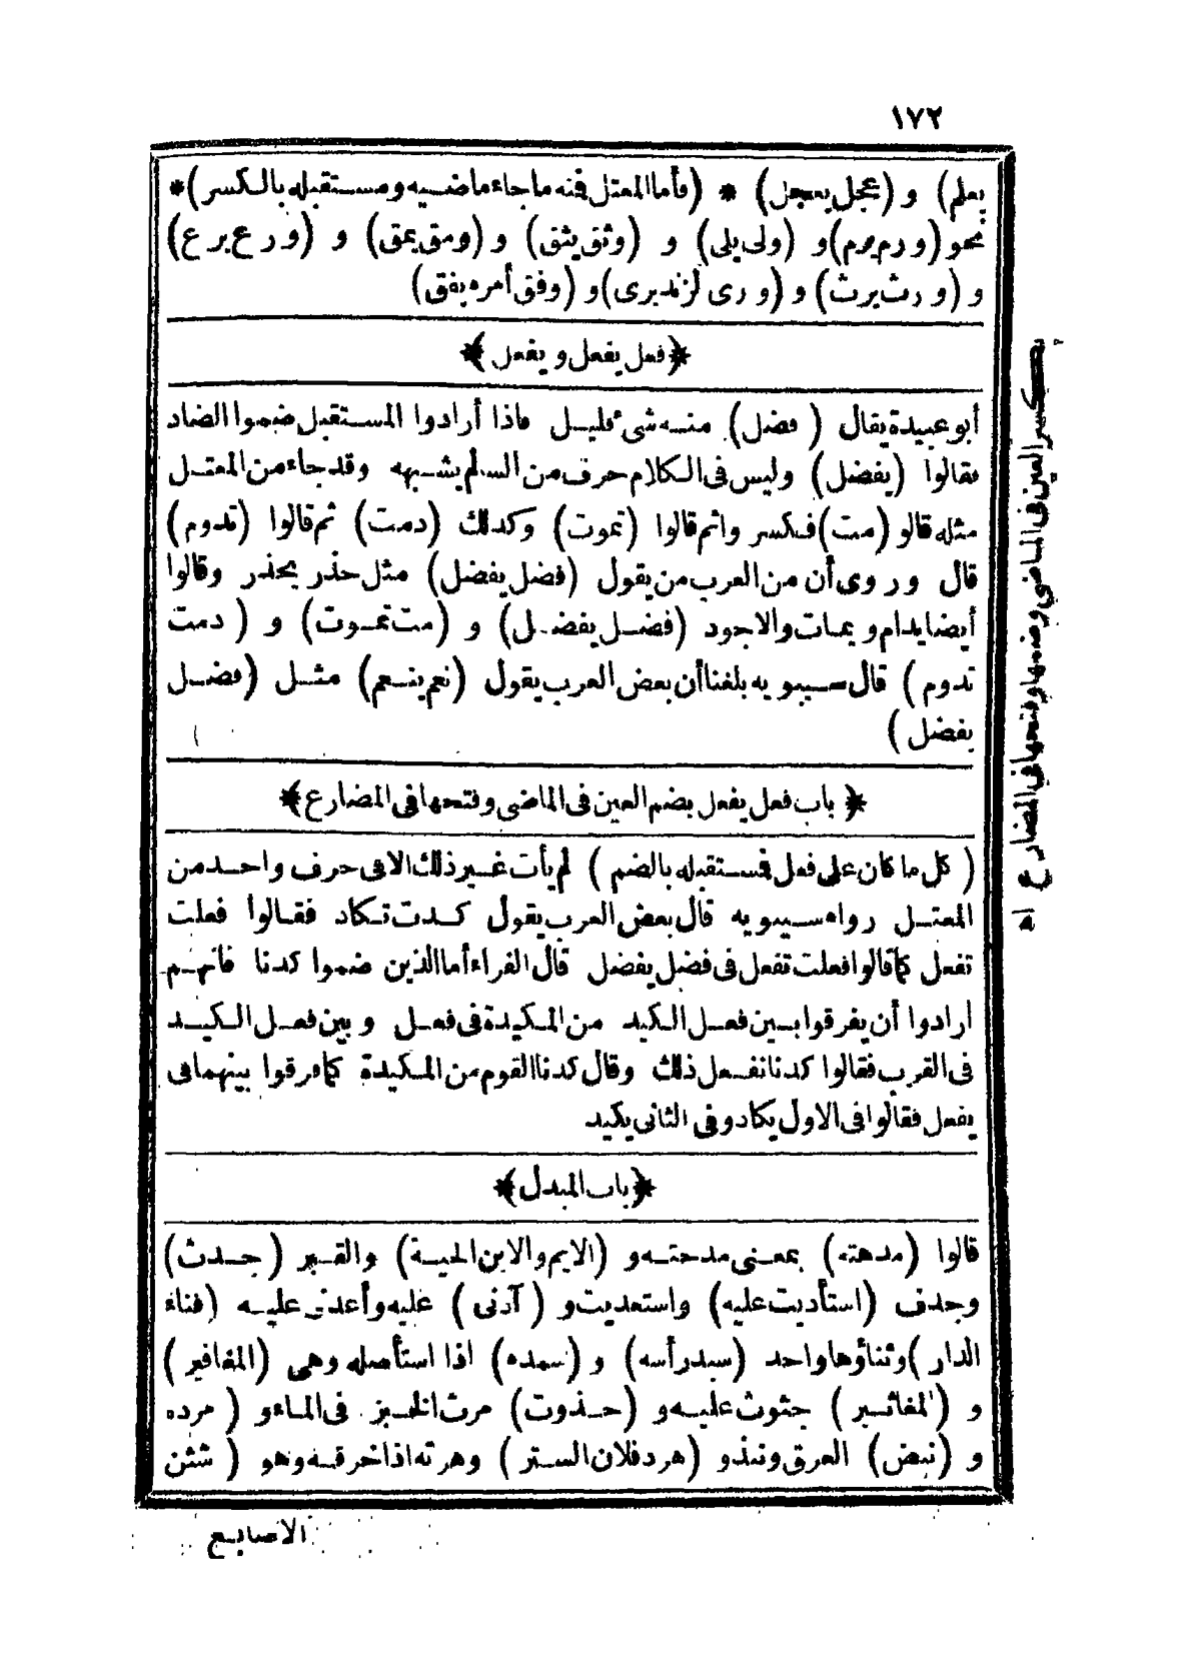 ١٧٢
يعلم) و (عجل يعجل) * (فأما المعتل فمنه ما جاء ماضيه ومستقبله بالكسر) *
نحو (ورم يرم) و (ولى يلى) و (وثق يثق) و (ومق يمق) و (ورع يرع)
و (ورث يرث) و (ورى الزنديرى) و (وفق أمره يفق)
﴿ فعل يفعل ويفعل ﴾
أبو عبيدة يقال (فضل) منه شئ قليل فاذا أرادوا المستقبل ضموا الضاد
فقالوا (يفضل) وليس فى الكلام حرف من السالم يشبهه وقد جاء من المعتل
مثله قالو (مت) فكسر واثم قالوا (تموت) وكذلك (دمت) ثم قالوا (تدوم)
قال وروى أن من العرب من يقول (فضل يفضل) مثل حذر يحذر وقالوا
أيضا يدام ويمات والاجود (فضل يفضل) و (مت تموت) و (دمت
تدوم) قال سيبويه بلغنا أن بعض العرب يقول (نعم ينعم) مثل (فضل
يفضل)
﴿ باب فعل يفعل بضم العين فى الماضى وفتحها فى المضارع ﴾
(كل ما كان على فعل فمستقبله بالضم) لم يأت غير ذلك الا فى حرف واحد من
المعتل رواه سيبويه قال بعض العرب يقول كدت تكاد فقالوا فعلت
تفعل كما قالوا فعلت تفعل فى فضل يفضل قال الفراء أما الذين ضموا كدنا فانهم
أرادوا أن يفرقوا بين فعل الكيد من المكيدة فى فعل وبين فعل الكيد
فى القرب فقالوا كدنا نفعل ذلك وقال كدنا القوم من المكيدة كما فرقوا بينهما فى
يفعل فقالوا فى الاول يكاد وفى الثانى يكيد
﴿ باب المبدل ﴾
قالوا (مدهته) بمعنى مدحته و (الايم والابن الحية) والقبر (جدث)
وجدف (استأديت عليه) واستعديت و (آدنى) عليه وأعدنى عليه (فناء
الدار) وثناؤها واحد (سبد رأسه) و (سمده) اذا استأصله وهى (المغافير)
و (المغاثير) جثوت عليه و (جذوت) مرث الخبز فى الماء و (مرده
و (نبض) العرق ونبذ و (هرد فلان الستر) وهرته اذا خرقه وهو (شثن
الاصابع
بكسر العين فى الماضى وضمها وفتحها فى المضارع اه